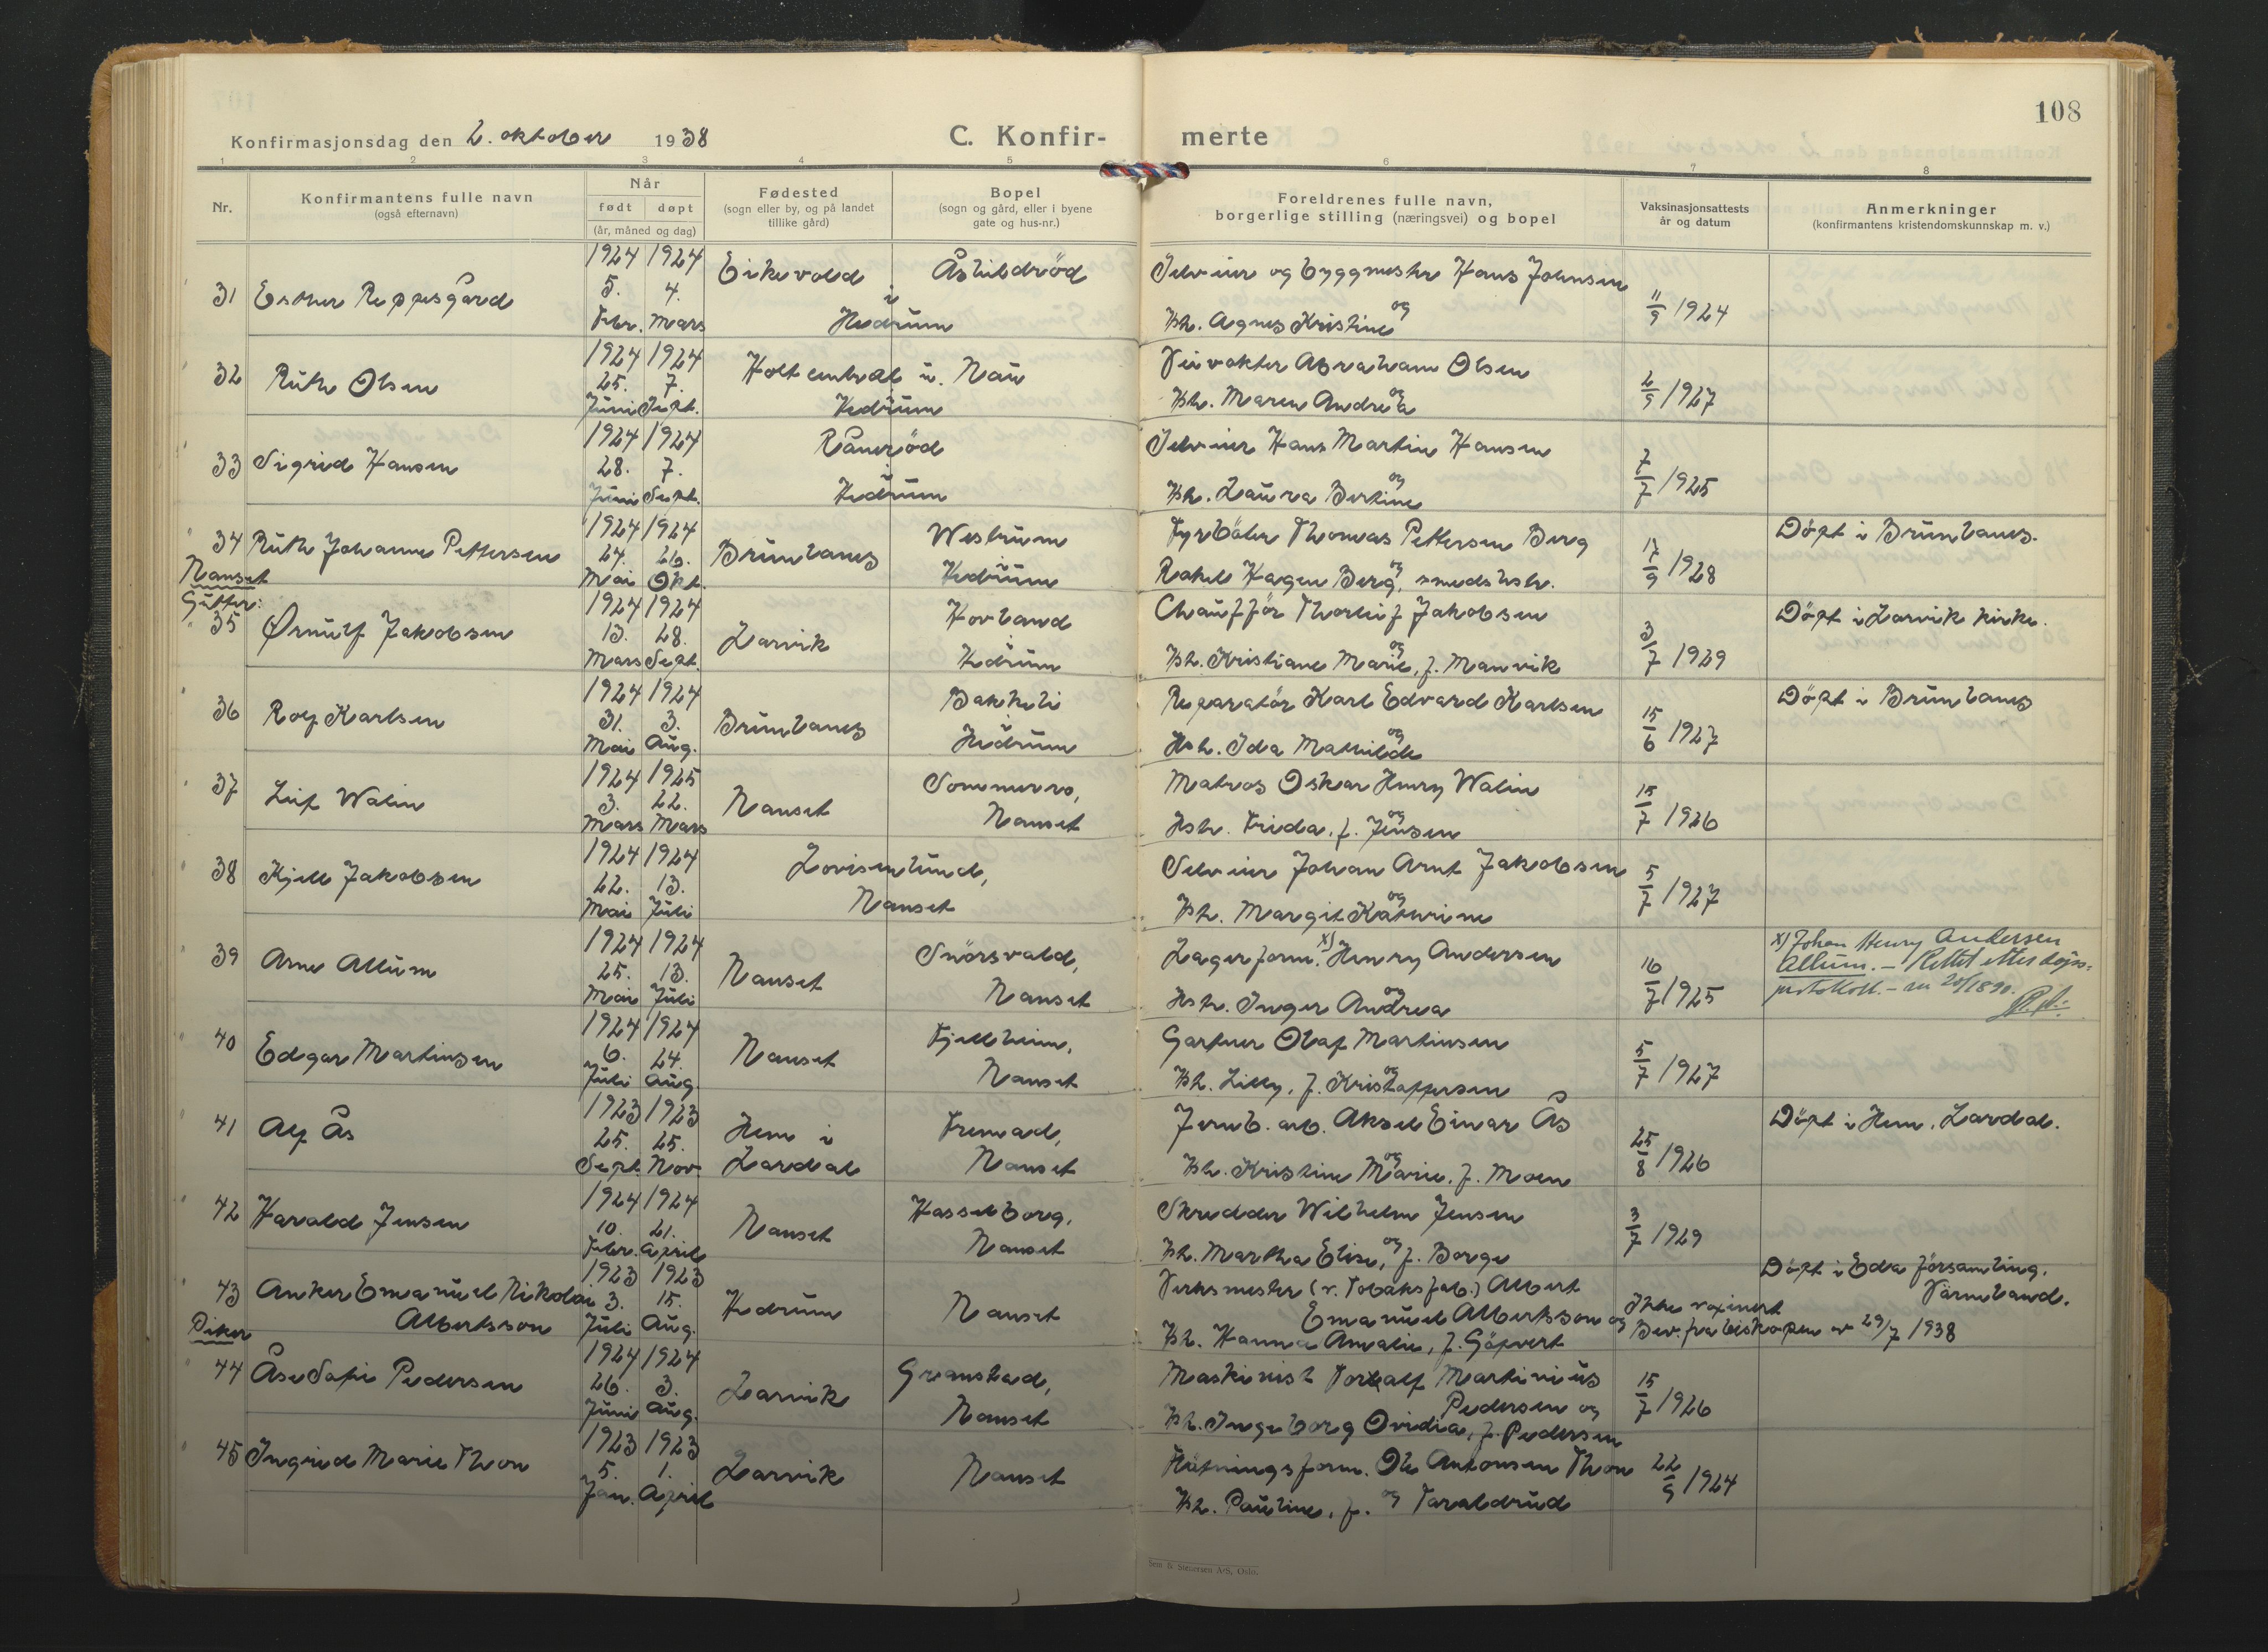 108
Konfirmasjonsdag den 2. oktober 1938
C. Konfir- merte
1 2 3 4 5 6 7 8
Nr.
Konfirmantens fulle navn
(også efternavn)
Når
født døpt
(år, måned og dag)
Fødested
(sogn eller by, og på landet
tillike gård)
Bopel
(sogn og gård, eller i byene
gate og hus-nr.)
Foreldrenes fulle navn,
borgerlige stilling (næringsvei) og bopel
Vaksinasjonsattests
år og datum
Anmerkninger
(konfirmantens kristendomskunnskap m. v.)
1924 1924 Eikevold Åshildröd Selveier og byggmester Hans Johnsen
31 Esther Reppesgård 5. 4. i og 11/9 1924
Febr. Mars Hedrum Hh. Agnes Kristine
1924 1924 Veivokter Abraham Olsen
32 Ruth Olsen 25. 7. Nau og 2/9 1927
Juni Sept. Hedrum Hh. Maren Andrea
1924 1924 Rånerød Selveier Hans Martin Hansen
33 Sigrid Hansen 28. 7. i og 7/7 1925
Juni Sept. Hedrum Hh. Laura Bertine
34 Ruth Johanne Pettersen 1924 1924 Brunlanes Westrum Fyrböter Thomas Pettersen Berg 17/9 1928 Döpt i Brunlanes.
24. 26. i og
Mai Okt. Hedrum Rakel Hagen Berg, smedshh.
Nanset
Gutter:
35 Ørnulf Jakobsen 1924 1924 Larvik Hovland Chaufför Thorleif Jakobsen 3/7 1929 Döpt i Larvik kirke.
13. 28. i og
Mars Sept. Hedrum Hh. Kristiane Marie, f. Manvik
36 Rolf Karlsen 1924 1924 Brunlanes Bakkeli Reparatör Karl Edvard Karlsen 15/6 1927 Döpt i Brunlanes
31. 3. i og
Mai Aug. Hedrum Hsh. Ida Mathilde
37 Leif Walin 1924 1925 Nanset Sommerro, Matros Oskar Henry Walin 15/7 1926
3. 22. og
Mars Mars Nanset Hsh. Frida, f. Jensen
38 Kjell Jakobsen 1924 1924 Lovisenlund, Selveier Johan Arnt Jakobsen 5/7 1927
22. 13. og
Mai Juli Nanset Hh. Margit Katherine
39 Arne Allum 1924 1924 Nanset Snörsvald, Lagerform. x) Henry Andersen 16/7 1925 x) Johan Henry Andersen
25. 13. og Allum. – Rettet etter dåps-
Mai Juli Nanset Hsh. Inger Andrea protokoll. –
40 Edgar Martinsen 1924 1924 Nanset Fjellheim, Gartner Olaf Martinsen 5/7 1927
6. 24. og
Juli Aug. Nanset Hh. Lilly, f. Kristoffersen
41 Alf Ås 1923 1923 Hem i Fremad, Jernb. arb. Aksel Einar Ås 25/8 1926 Döpt i Hem, Lardal.
25. 25. og
Sept. Nov. Lardal Nanset Hh. Kristine Marie, f. Moen
42 Harald Jensen 1924 1924 Nanset Hasselborg, Skredder Wilhelm Jensen 3/7 1929
10. 21. og
Febr. April Nanset Hh. Martha Elise, f. Borge
43 Anker Emanuel Nikolai 1923 1923 Hedrum Nanset Verksmester (v. Tobaksfab.) Albert Döpt i Eda församling,
Albertsson 3. 15. Emanuel Albertsson og Ikke vaxinert Värmland.
Juli Aug. Hh. Hanna Amalie, f. Göpvert Bev. fra biskopen av 29/7 1938
Piker
44 Åse Sofie Pedersen 1924 1924 Larvik Granstad, Maskinist Toralf Martinius 15/7 1926
26. 3. Pedersen og
Juni Aug. Nanset Hh. Ingeborg Ovidia, f. Pedersen
45 Ingrid Marie Thon 1923 1923 Larvik Nanset Fløtningsform. Ole Antonsen Thon 22/9 1924
5. 1. og
Jan. April Hh. Pauline, f. Taraldrud
Sem & Stenersen A/S, Oslo.